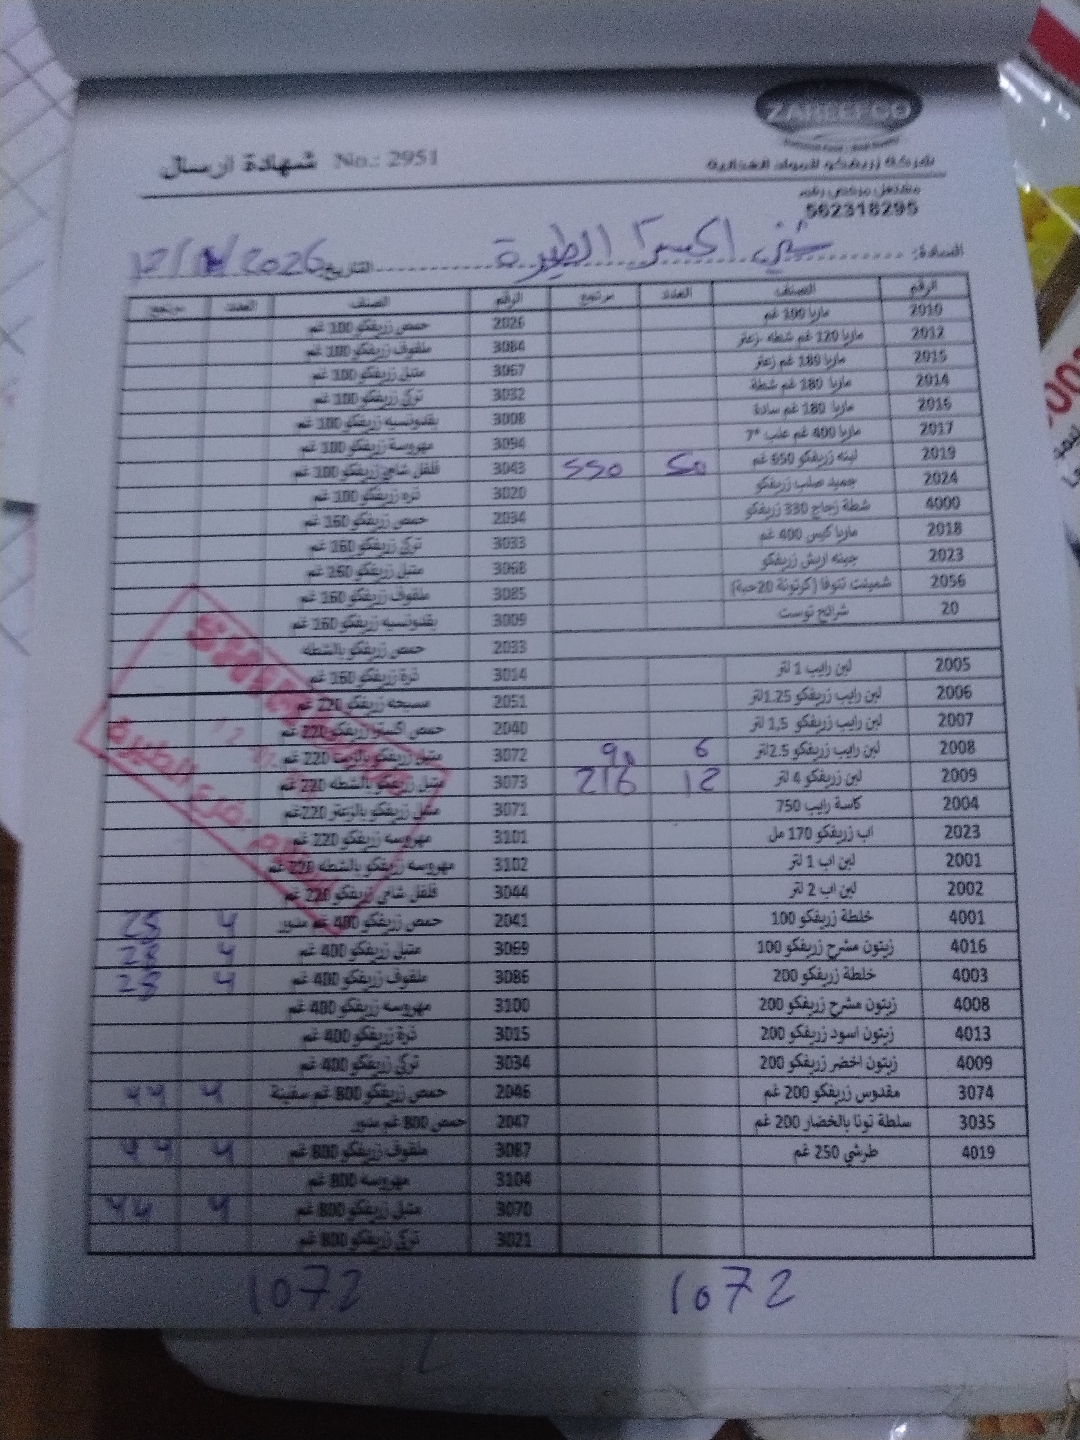 ZAREEFCO
شركة زريفكو للمواد الغذائية
شهادة ارسال No.: 2951
مشتغل مرخص رقم
562318295
السادة: اكسترا الطيرة التاريخ 2026
الرقم الصنف العدد مرتجع الرقم الصنف العدد مرتجع
2010 ماريا 100 غم 2026 حمص زريفكو 100 غم
2012 ماريا 120 غم شطه .زعتر 3084 ملفوف زريفكو 100 غم
2015 ماريا 180 غم زعتر 3067 متبل زريفكو 100 غم
2014 ماريا 180 غم شطة 3032 تركي زريفكو 100 غم
2016 ماريا 180 غم سادة 3008 بقدونسيه زريفكو 100 غم
2017 ماريا 400 غم علب *7 3094 مهروسة زريفكو 100 غم
2019 لبنه زريفكو 650 غم 50 550 3043 فلفل شامي زريفكو 100 غم
2024 جميد صلب زريفكو 3020 ذره زريفكو 100 غم
4000 شطة زجاج 330 زريفكو 2034 حمص زريفكو 160 غم
2018 ماريا كيس 400 غم 3033 تركي زريفكو 160 غم
2023 جبنه اريش زريفكو 3068 متبل زريفكو 160 غم
2056 شمينت تنوفا (كرتونة 20حبة) 3085 ملفوف زريفكو 160 غم
20 شرائح توست 3009 بقدونسيه زريفكو 160 غم
2033 حمص زريفكو بالشطه
2005 لبن رايب 1 لتر 3014 ذرة زريفكو 160 غم
2006 لبن رايب زريفكو 1.25لتر 2051 مسبحه زريفكو 220 غم
2007 لبن رايب زريفكو 1,5 لتر 2040 حمص اكسترا زريفكو 220 غم
2008 لبن رايب زريفكو 2.5لتر 6 90 3072 متبل زريفكو بالزيت 220 غم
2009 لبن زريفكو 4 لتر 12 216 3073 متبل زريفكو بالشطه 220 غم
2004 كاسة رايب 750 3071 متبل زريفكو بالزعتر 220غم
2023 اب زريفكو 170 مل 3101 مهروسه زريفكو 220 غم
2001 لبن اب 1 لتر 3102 مهروسه زريفكو بالشطه 220 غم
2002 لبن اب 2 لتر 3044 فلفل شامي زريفكو 220 غم
4001 خلطة زريفكو 100 2041 حمص زريفكو 400 غم مدور 4 28
4016 زيتون مشرح زريفكو 100 3069 متبل زريفكو 400 غم 4 28
4003 خلطة زريفكو 200 3086 ملفوف زريفكو 400 غم 4 28
4008 زيتون مشرح زريفكو 200 3100 مهروسه زريفكو 400 غم
4013 زيتون اسود زريفكو 200 3015 ذرة زريفكو 400 غم
4009 زيتون اخضر زريفكو 200 3034 تركي زريفكو 400 غم
3074 مقدوس زريفكو 200 غم 2046 حمص زريفكو 800 غم سفينة 4 44
3035 سلطة تونا بالخضار 200 غم 2047 حمص 800 غم مدور
4019 طرشي 250 غم 3087 ملفوف زريفكو 800 غم 4 44
3104 مهروسه 800 غم
3070 متبل زريفكو 800 غم 4 44
3021 تركي زريفكو 800 غم
1072 1072